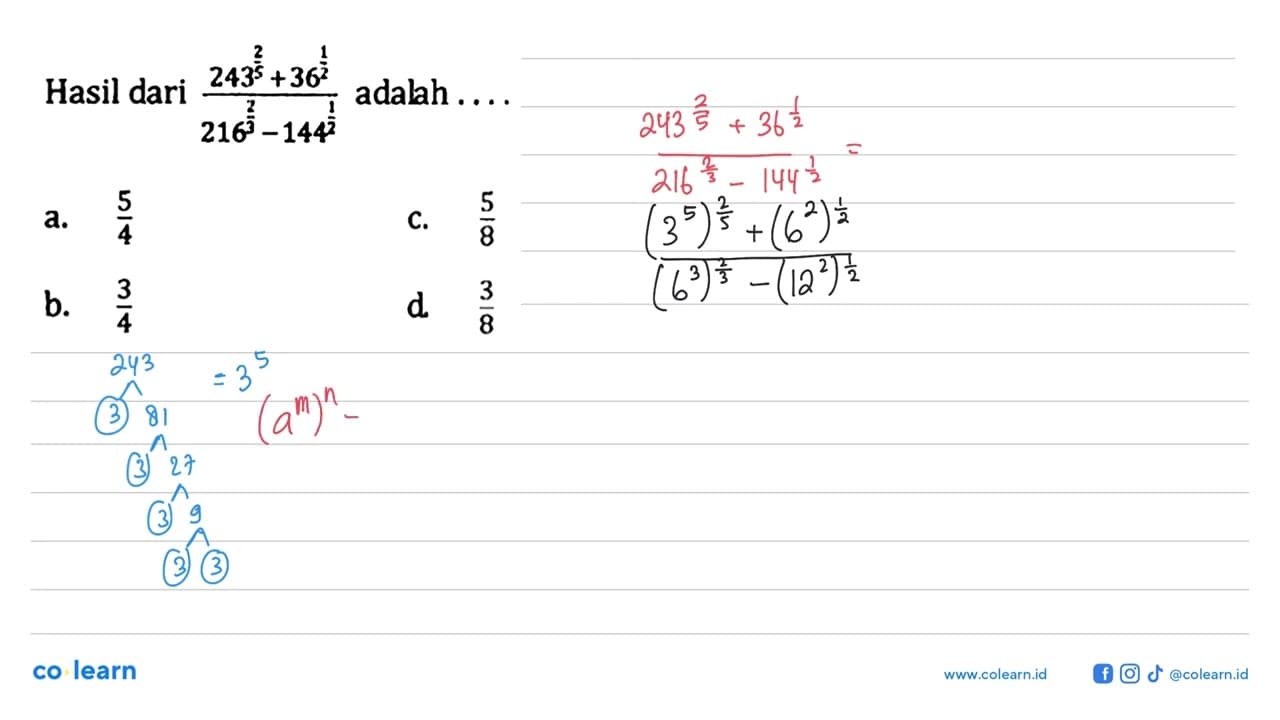 Hasil dari \frac{243^{\frac{2}{5}} + 36^{\frac{1}{2}}}{216^{\frac{2}{3}} - 144^{\frac{1}{2}}} adalah ....
a. \frac{5}{4}
c. \frac{5}{8}
b. \frac{3}{4}
d. \frac{3}{8}
\frac{243^{\frac{2}{5}} + 36^{\frac{1}{2}}}{216^{\frac{2}{3}} - 144^{\frac{1}{2}}} =
\frac{(3^5)^{\frac{2}{5}} + (6^2)^{\frac{1}{2}}}{(6^3)^{\frac{2}{3}} - (12^2)^{\frac{1}{2}}}
243 = 3^5
3 81
3 27
3 9
3 3
(a^m)^n -
co learn
www.colearn.id
@colearn.id